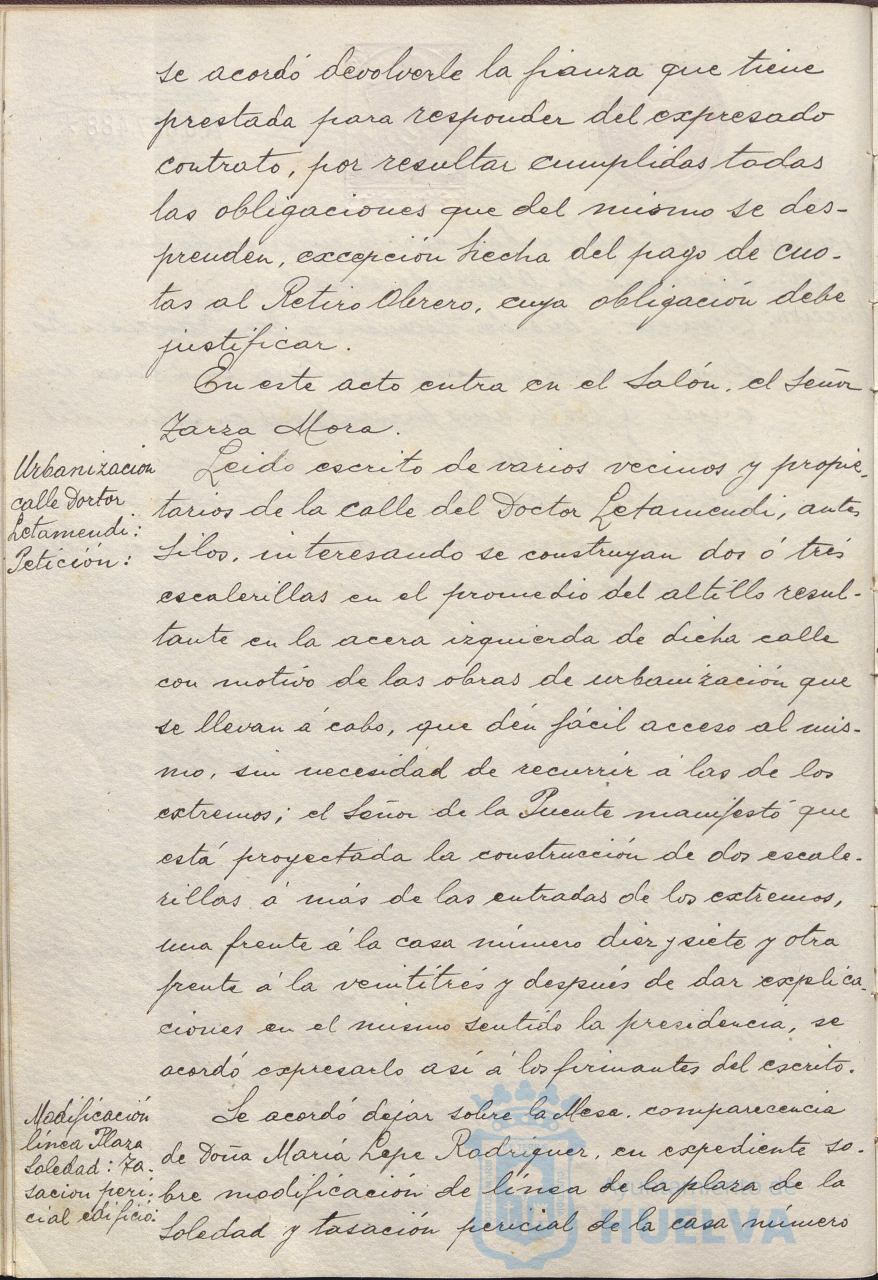 se acordó devolverle la fianza que tiene
prestada para responder del expresado
contrato, por resultar cumplidas todas
las obligaciones que del mismo se des-
prenden, excepción hecha del pago de cuo-
tas al Retiro Obrero, cuya obligación debe
justificar.
En este acto entra en el Salón, el Señor
Zarza Mora.
Urbanización
calle Doctor
Letamendi:
Petición:
Leido escrito de varios vecinos y propie-
tarios de la calle del Doctor Letamendi, antes
Silos, interesando se construyan dos ó trés
escalerillas en el promedio del altillo resul-
tante en la acera izquierda de dicha calle
con motivo de las obras de urbanización que
se llevan á cabo, que dén fácil acceso al mis-
mo, sin necesidad de recurrir á las de los
extremos; el Señor de la Puente manifestó que
está proyectada la construcción de dos escale-
rillas á más de las entradas de los extremos,
una frente á la casa número diez y siete y otra
frente á la veintitrés y después de dar explica-
ciones en el mismo sentido la presidencia, se
acordó expresarlo así á los firmantes del escrito.
Modificación
línea Plaza
Soledad: Ta-
sacion peri-
cial edificio:
Se acordó dejar sobre la Mesa, comparecencia
de Doña María Lepe Rodriguez, en expediente so-
bre modificación de línea de la plaza de la
Soledad y tasación pericial de la casa número
Ayuntamiento de
HUELVA